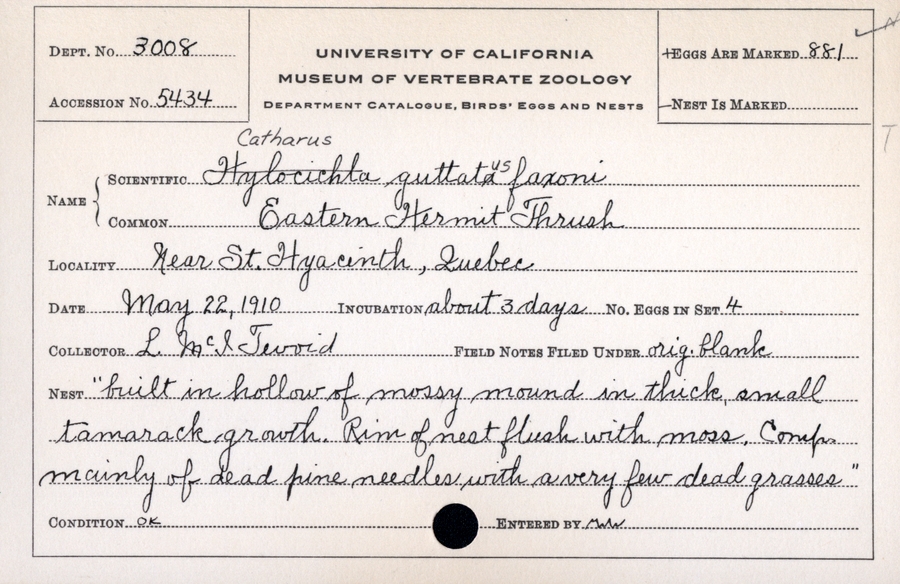 Dept. No. 3008
Accession No. 5434
UNIVERSITY OF CALIFORNIA
MUSEUM OF VERTEBRATE ZOOLOGY
Department Catalogue, Birds' Eggs and Nests
Eggs Are Marked 881
Nest Is Marked
T
Catharus
Name Scientific Hylocichla guttata us faxoni
Common Eastern Hermit Thrush
Locality Near St. Hyacinth, Quebec
Date May 22, 1910 Incubation about 3 days No. Eggs in Set 4
Collector L. McI Field Notes Filed Under orig. blank
Nest "built in hollow of mossy mound in thick, small
tamarack growth. Rim of nest flush with moss. Comp.
mainly of dead pine needles with a very few dead grasses"
Condition OK Entered by